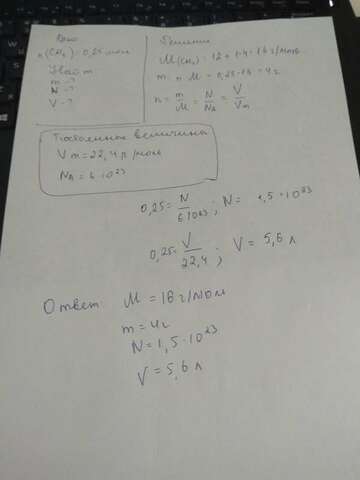 Дано
n(CH₄) = 0,25 моль
Найти
m - ?
N - ?
V - ?
Решение
M(CH₄) = 12 + 1·4 = 16 г/моль
m = n · M = 0,25·16 = 4 г
n = m/M = N/NA = V/Vm
Постоянная величина
Vm = 22,4 л/моль
NA = 6·10²³
0,25 = N/6·10²³ ; N = 1,5·10²³
0,25 = V/22,4 ; V = 5,6 л
Ответ M = 16 г/моль
m = 4 г
N = 1,5·10²³
V = 5,6 л